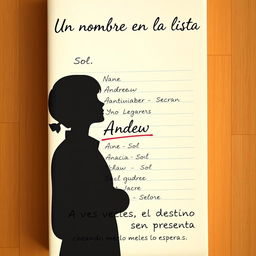 Un nombre en la lista
Sol.
Name
Andreaw
Aantiuiaber - Secran
Yno Legarers
Andew
Aine - Sol
Anacia - Soit
- Soil
gudree
lacre
- Selore
A ves vecles, el destino
sen presenta
meles lo esperas.